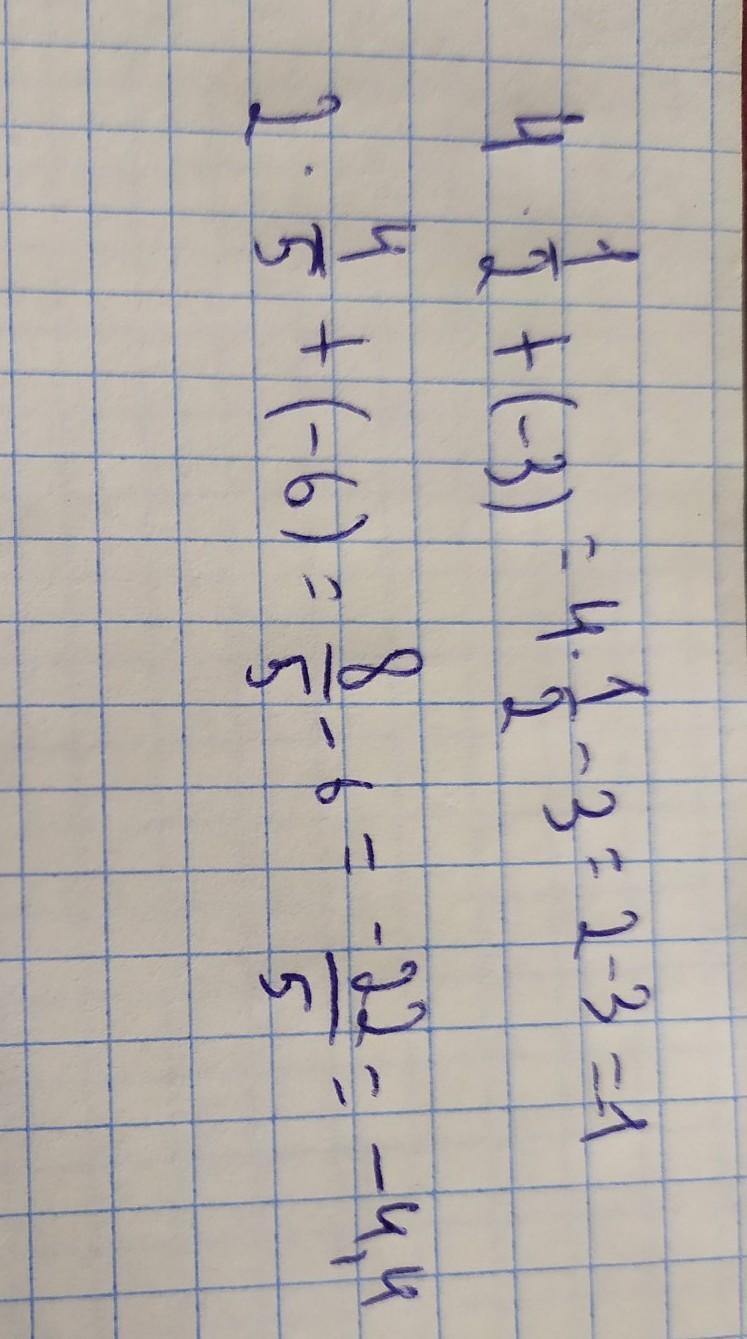 4 · 1/2 + (-3) = 4 · 1/2 - 3 = 2 - 3 = -1
2 · 4/5 + (-6) = 8/5 - 6 = -22/5 = -4,4